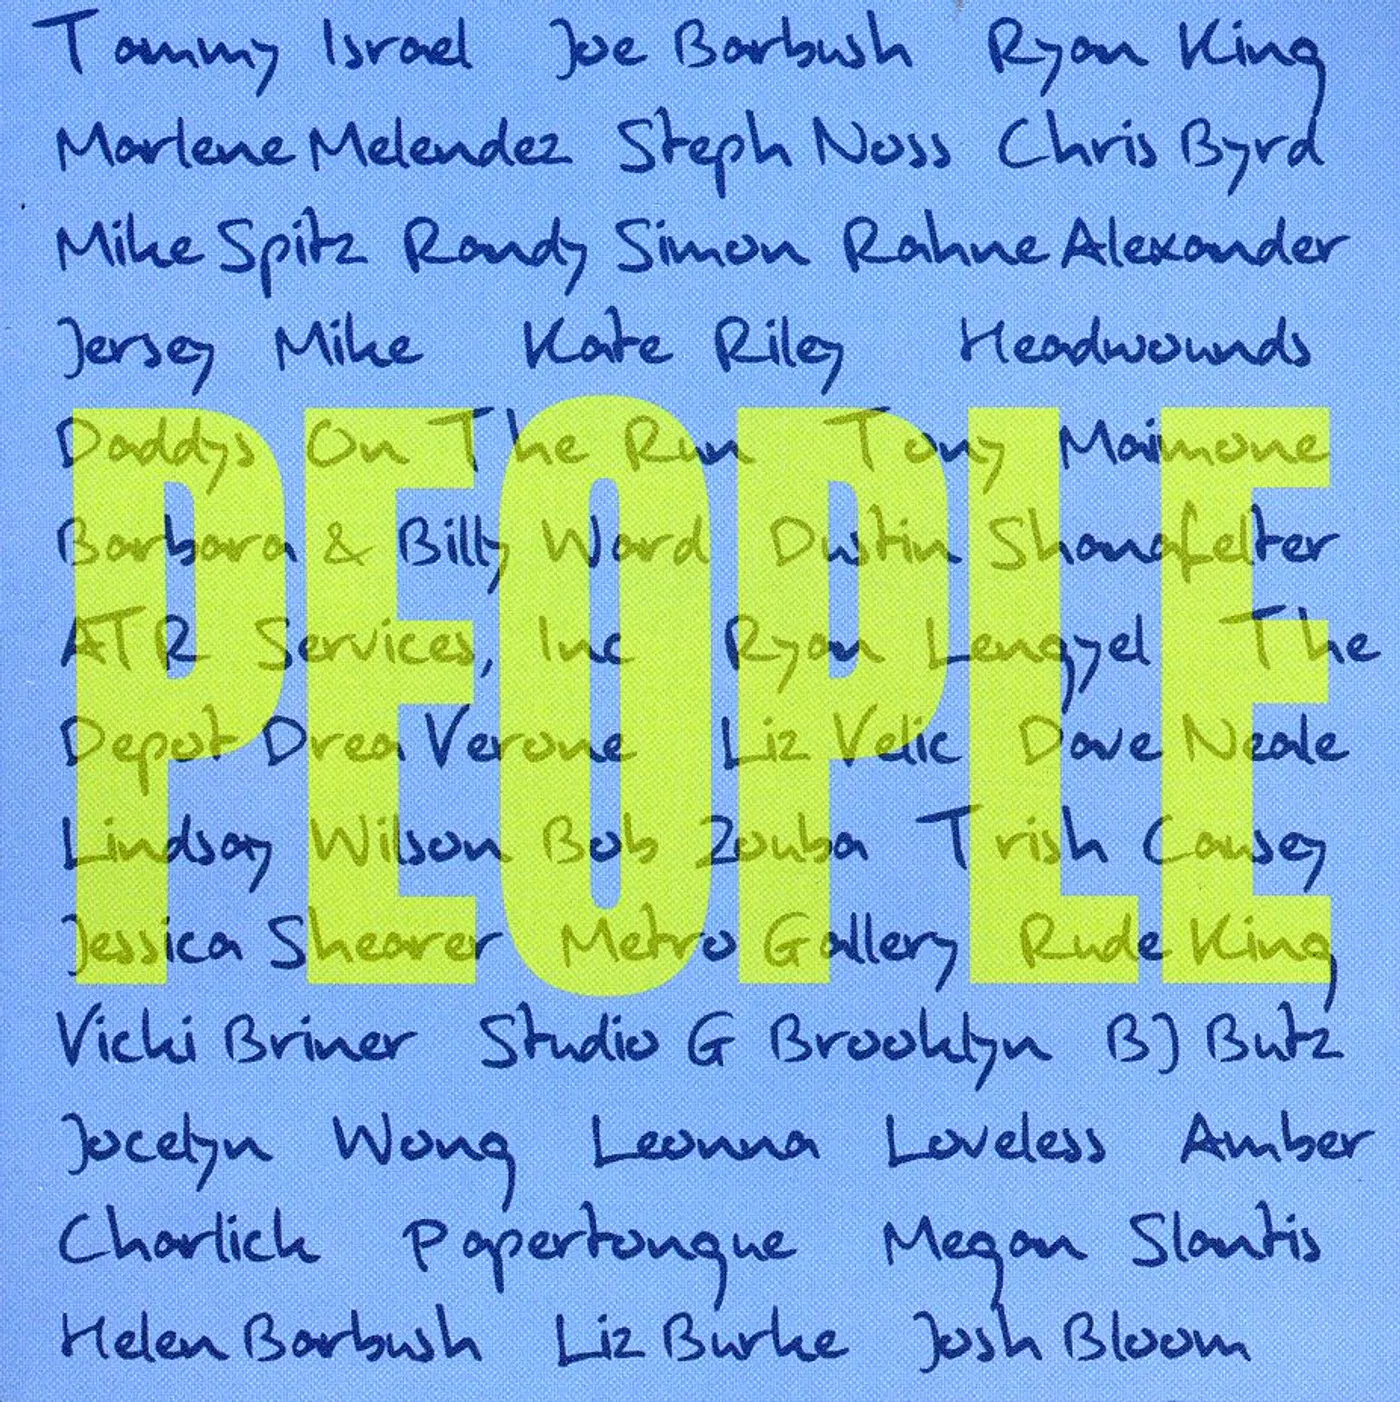 Tammy Israel Joe Barbush Ryan King
Marlene Melendez Steph Noss Chris Byrd
Mike Spitz Randy Simon Rahne Alexander
Jersey Mike Kate Riley Headwounds
Daddys On The Run Tony Maimone
Barbara & Billy Ward Dustin Shanafelter
ATR Services, Inc Ryan Lengyel The
Depot Drea Verone Liz Velic Dave Neale
Lindsay Wilson Bob Zouba Trish Causey
Jessica Shearer Metro Gallery Rude King
Vicki Briner Studio G Brooklyn BJ Butz
Jocelyn Wong Leonna Loveless Amber
Charlick Papertongue Megan Slantis
Helen Barbush Liz Burke Josh Bloom
PEOPLE